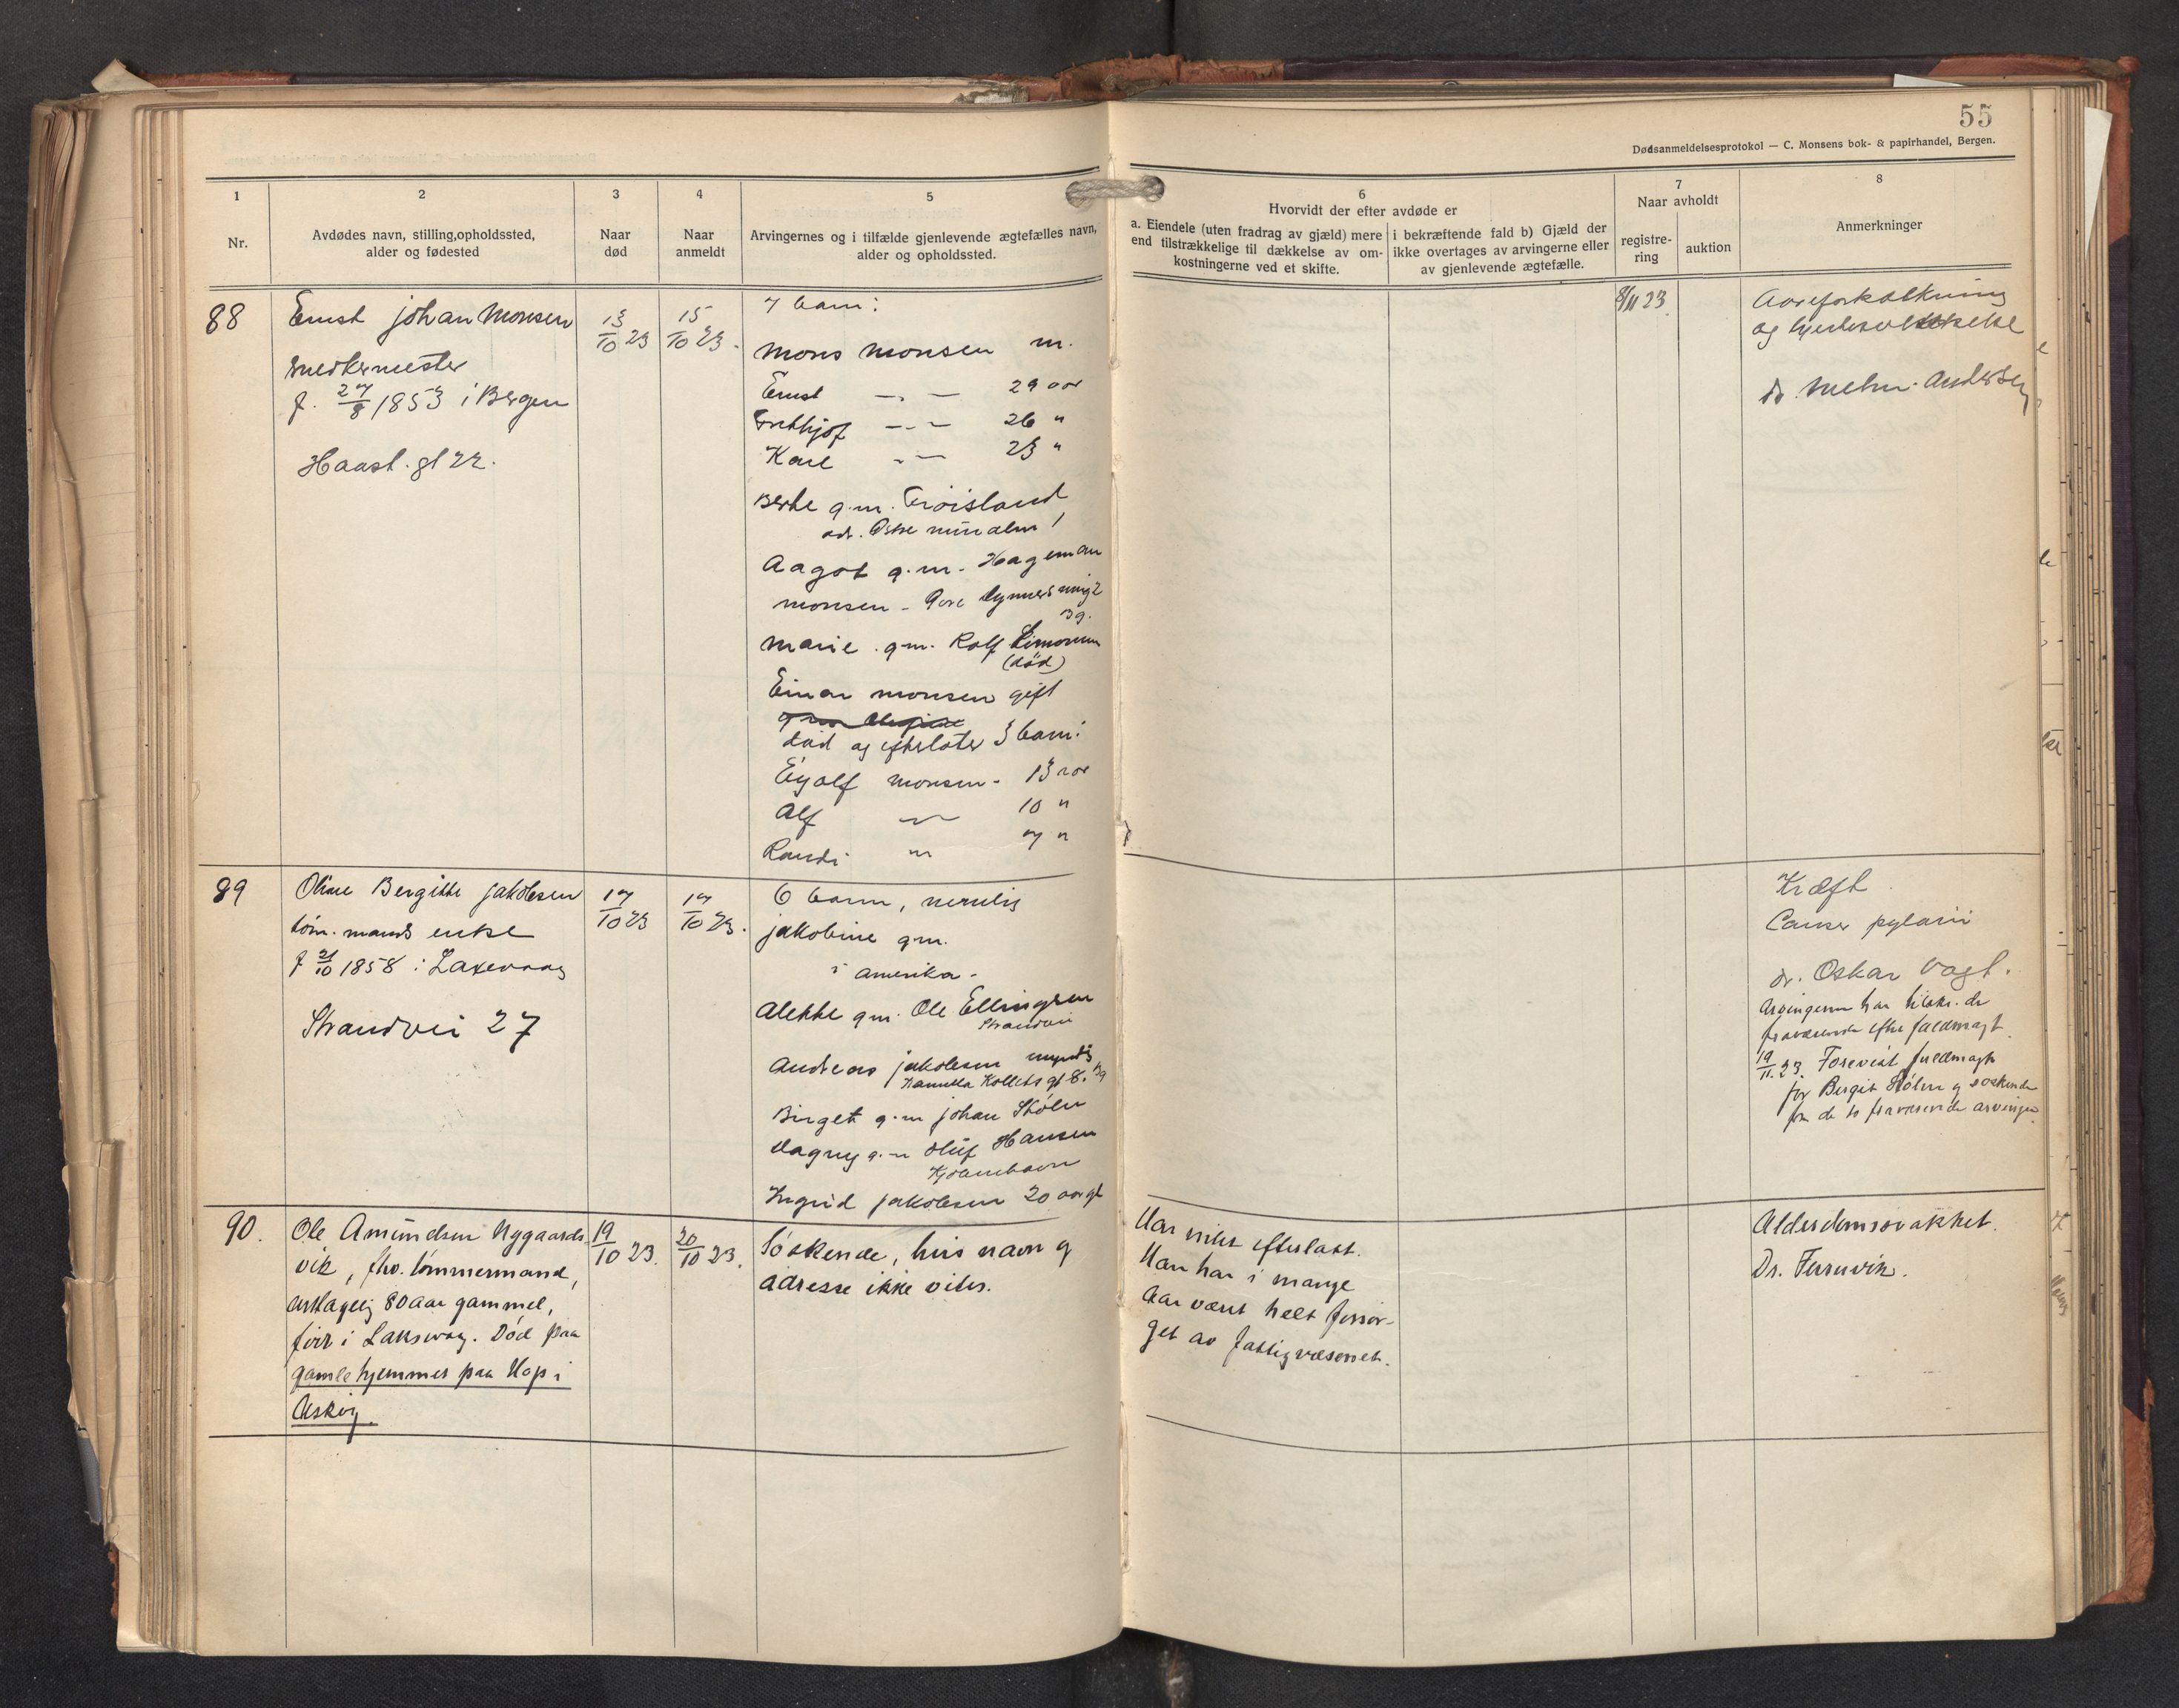 55
Dødsanmeldelsesprotokol — C. Monsens bok- & papirhandel, Bergen.
1
Nr.
2
Avdødes navn, stilling,opholdssted,
alder og fødested
3
Naar
død
4
Naar
anmeldt
5
Arvingernes og i tilfælde gjenlevende ægtefælles navn,
alder og opholdssted.
6
Hvorvidt der efter avdøde er
a. Eiendele (uten fradrag av gjæld) mere
end tilstrækkelige til dækkelse av om-
kostningerne ved et skifte.
i bekræftende fald b) Gjæld der
ikke overtages av arvingerne eller
av gjenlevende ægtefælle.
7
Naar avholdt
registre-
ring
auktion
8
Anmerkninger
88
Ernst Johan Monsen
snedkermester
f. 27/8 1853 i Bergen
Haast. gt 22.
13/10 23
15/10 23.
7 barn:
Mons Monsen m.
Ernst — 29 aar
Frithjof — 26 "
Karl — 23 "
Berte g.m. Frøisland
Aagot g.m. Hageman
Monsen
Bg.
Marie g.m. Rolf Simonsen
(død)
Einar Monsen gift
død og efterlater 3 barn:
Eyolf Monsen - 13 aar
Alf — 10 "
Randi " 7 "
8/11 23
Aareforkalkning
og
dr. Andersen
89
Oline Bergitte Jakobsen
tøm. mands enke
f 21/10 1858 i Laxevaag
Strandvei 27
17/10 23
17/10 23.
6 barn, nemlig
Jakobine g.m.
i Amerika -
Alette g.m. Ole Ellingsen
Strandvei
Andreas Jakobsen myndig
Kamilla Kolletts gt 8. Bg
Birget g.m Johan Stólen
Dagny g.m Oluf Hansen
Kjøbenhavn
Ingrid Jakobsen 20 aar gl
Kræft
Cancer pylorii
dr. Oskar Vogt.
Arvingerne har tilskr. de
fraværende efter fuldmagt
19/11.23. Forevist fuldmagt
for Birgit Stólen og søskende
fra de to fraværende arvinger.
90.
Ole Amundsen Nygaards-
vik, fhv. tømmermand,
antagelig 80 aar gammel,
før i Laksevaag. Død paa
gamlehjemmet paa Hop i
Askøy.
19/10 23.
20/10 23.
Søskende, hvis navn og
adresse ikke vites.
Har intet efterlatt.
Han har i mange
aar været helt forsør-
get av fattigvæsenet.
Alderdomssvakhet.
Dr. Fersnvik.